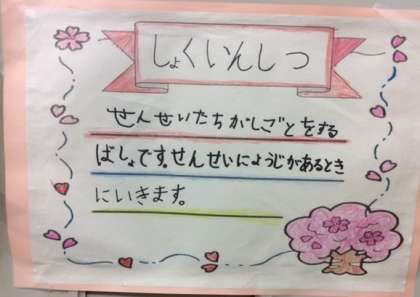 しょくいんしつ
せんせいたちがしごとをする
ばしょです。せんせいにようじがあるとき
にいきます。